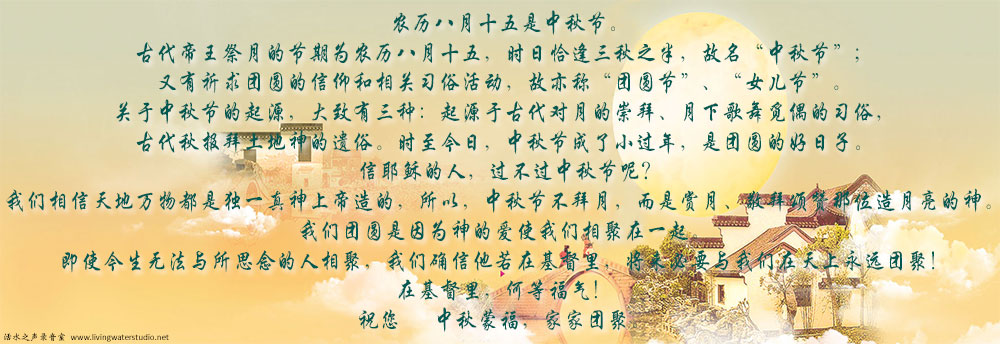 农历八月十五是中秋节。
古代帝王祭月的节期为农历八月十五，时日恰逢三秋之半，故名“中秋节”；
又有祈求团圆的信仰和相关习俗活动，故亦称“团圆节”、“女儿节”。
关于中秋节的起源，大致有三种：起源于古代对月的崇拜、月下歌舞觅偶的习俗，
古代秋报拜土地神的遗俗。时至今日，中秋节成了小过年，是团圆的好日子。
信耶稣的人，过不过中秋节呢？
我们相信天地万物都是独一真神上帝造的，所以，中秋节不拜月，而是赏月、敬拜颂赞那位造月亮的神。
我们团圆是因为神的爱使我们相聚在一起，
即使今生无法与所思念的人相聚，我们确信他若在基督里，将来必要与我们在天上永远团聚！
在基督里，何等福气！
祝您 中秋蒙福，家家团聚。
活水之声录音室 www.livingwaterstudio.net